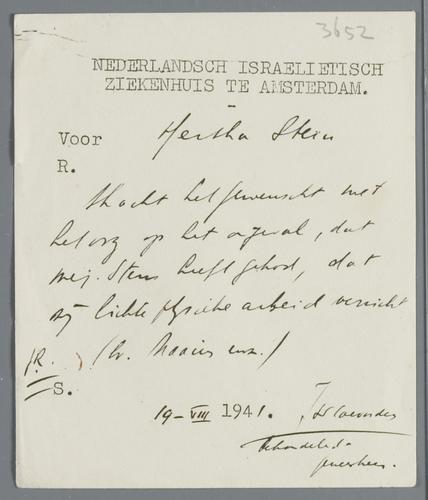 3652
NEDERLANDSCH ISRAELIETISCH
ZIEKENHUIS TE AMSTERDAM.
Voor Hertha Stein
R.
Mocht het gewenscht met
het oog op het ongeval, dat
mej. Stein heeft gehad, dat
zij lichte physische arbeid verricht
(b.v. Naaien enz.)
R.
S.
19-VIII 1941.
behandelend
geneesheer.